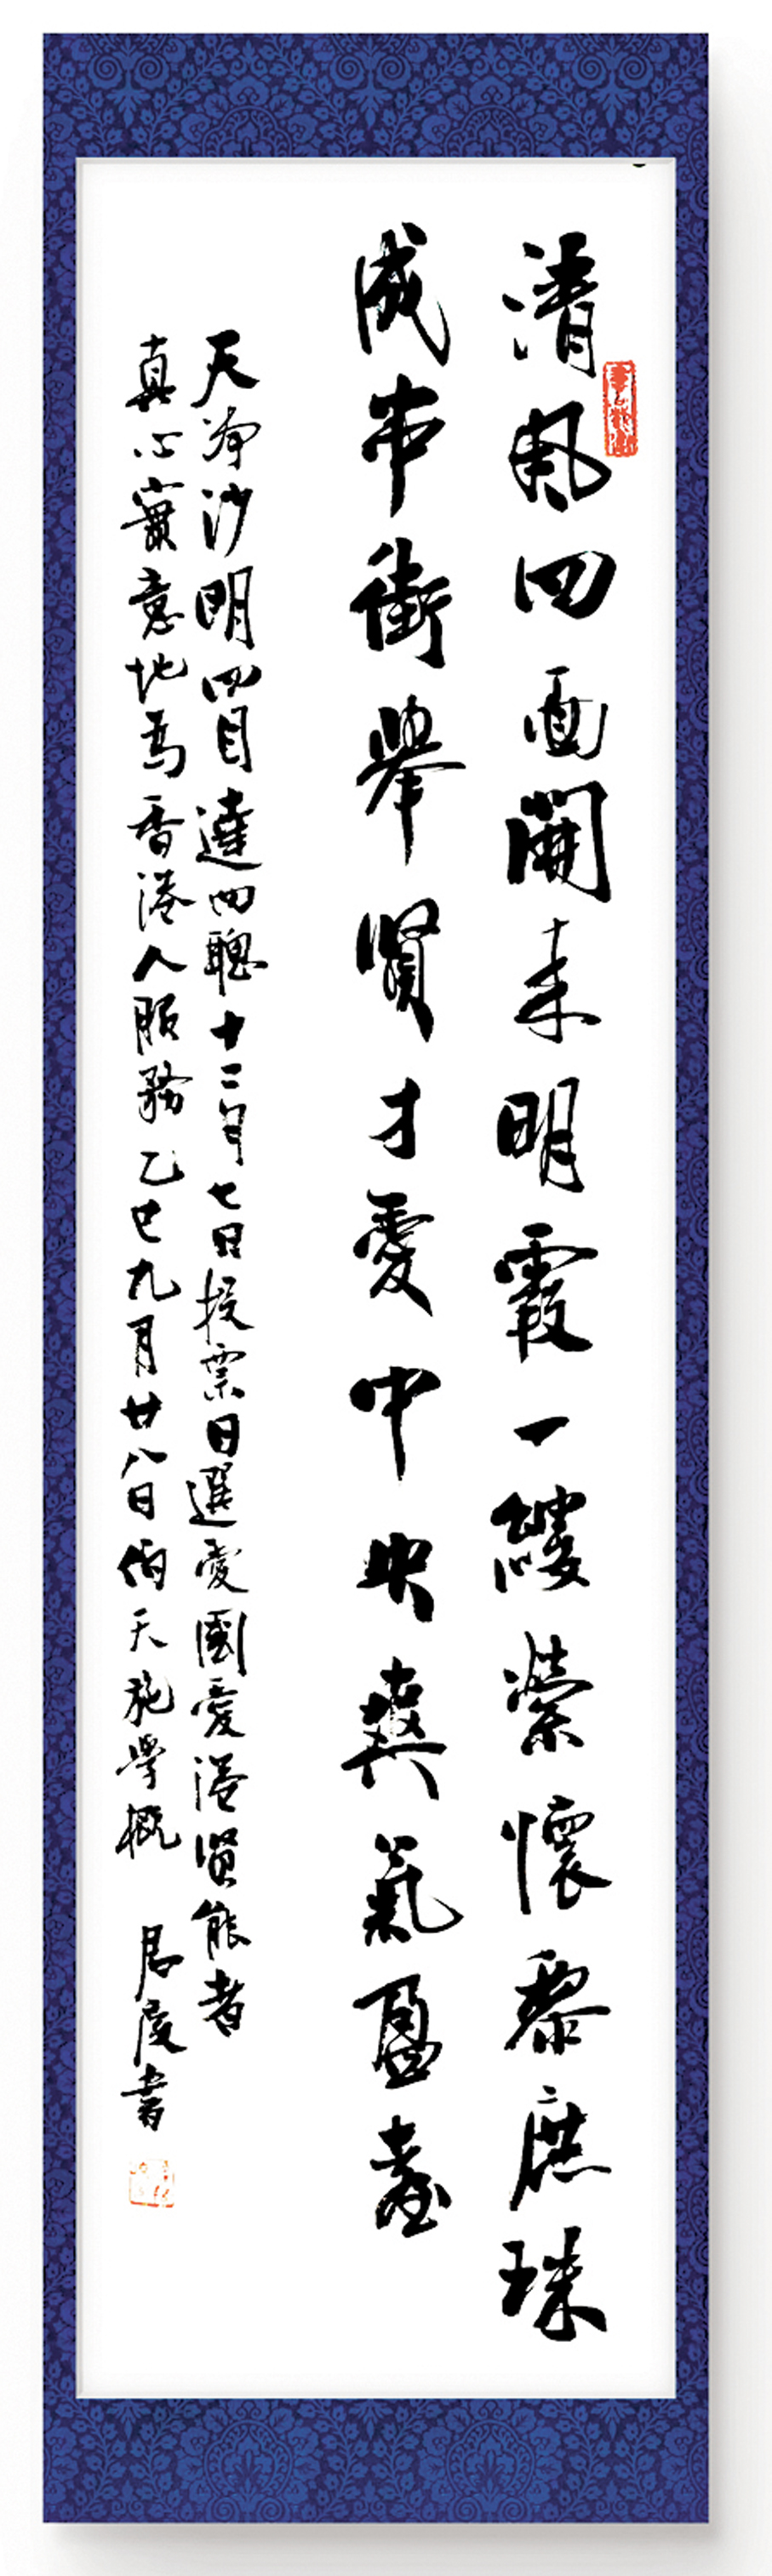 清風四面開來明霞一縷縈懷黎庶珠
成串銜舉賢才愛中央爽氣盈臺
天淨沙明四目達四聰十二月七日投票日選愛國愛港賢能者
真心實意地為香港人服務乙巳九月廿八日伯天施學概 居慶書